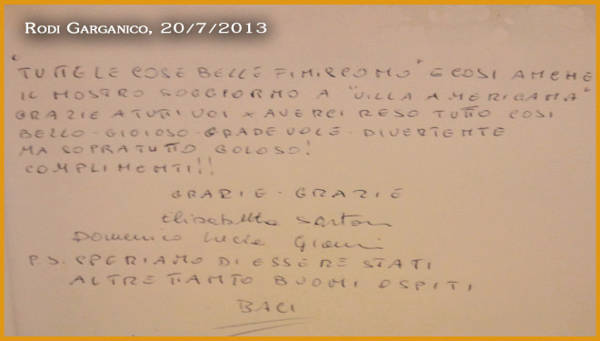 Rodi Garganico, 20/7/2013
"TUTTE LE COSE BELLE FINISCONO" E COSI ANCHE
IL NOSTRO SOGGIORNO A "VILLA AMERICANA"
GRAZIE A TUTTI VOI x AVERCI RESO TUTTO COSI
BELLO - GIOIOSO - GRADEVOLE - DIVERTENTE
MA SOPRATUTTO GOLOSO!
COMPLIMENTI!!
GRAZIE - GRAZIE
Elisabetta
Domenico Lucia Gianni
P.S. SPERIAMO DI ESSERE STATI
ALTRETTANTO BUONI OSPITI
BACI